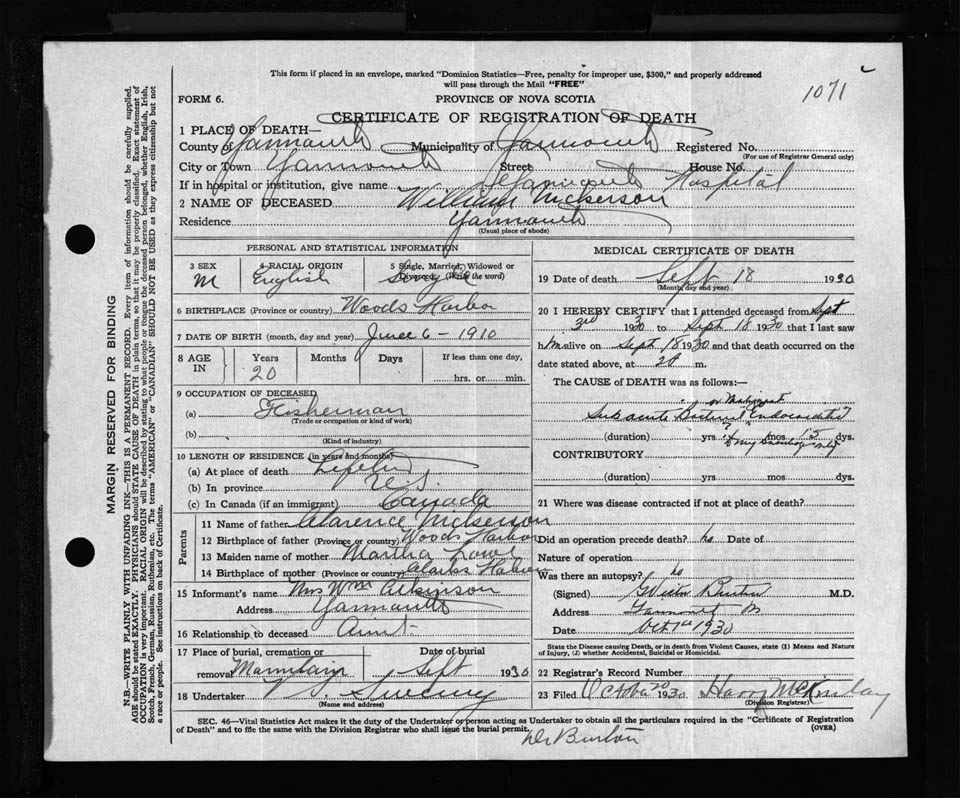 This form if placed in an envelope, marked "Dominion Statistics—Free, penalty for improper use, $300," and properly addressed
will pass through the Mail "FREE"
1071
FORM 6.
PROVINCE OF NOVA SCOTIA
CERTIFICATE OF REGISTRATION OF DEATH
1 PLACE OF DEATH—
County of Yarmouth Municipality of Yarmouth Registered No.
(For use of Registrar General only)
City or Town Yarmouth Street House No.
If in hospital or institution, give name Yarmouth Hospital
2 NAME OF DECEASED William Nickerson
Residence Yarmouth
(Usual place of abode)
PERSONAL AND STATISTICAL INFORMATION
3 SEX 4 RACIAL ORIGIN 5 Single, Married, Widowed or
Divorced (Write the word)
M English Single
6 BIRTHPLACE (Province or country) Woods Harbor
7 DATE OF BIRTH (month, day and year) June 6 - 1910
8 AGE IN Years Months Days If less than one day,
20 hrs. or min.
9 OCCUPATION OF DECEASED
(a) Fisherman
(Trade or occupation or kind of work)
(b)
(Kind of industry)
10 LENGTH OF RESIDENCE (in years and months)
(a) At place of death
(b) In province N.S.
(c) In Canada (if an immigrant) Canada
Parents
11 Name of father Clarence Nickerson
12 Birthplace of father (Province or country) Woods Harbor
13 Maiden name of mother Martha
14 Birthplace of mother (Province or country) Clarks Harbor
15 Informant's name Mrs Wm Atkinson
Address Yarmouth
16 Relationship to deceased Aunt
17 Place of burial, cremation or Date of burial
removal Sept 1930
18 Undertaker V. S. Sweeny
(Name and address)
MEDICAL CERTIFICATE OF DEATH
19 Date of death Sept 18 1930
(Month, day and year)
20 I HEREBY CERTIFY that I attended deceased from Sept
3rd 1930 to Sept 18 1930 that I last saw
him alive on Sept 18 1930 and that death occurred on the
date stated above, at m.
The CAUSE of DEATH was as follows:—
or Malignant
Subacute Bacterial Endocarditis
(duration) yrs mos 15 dys.
of my knowledge only
CONTRIBUTORY
(duration) yrs mos dys
21 Where was disease contracted if not at place of death?
Did an operation precede death? no Date of
Nature of operation
Was there an autopsy? no
(Signed) Burton M.D.
Address Yarmouth
Date Oct 1st 1930
State the Disease causing Death, or in death from Violent Causes, state (1) Means and Nature
of Injury, (2) whether Accidental, Suicidal or Homicidal.
22 Registrar's Record Number
23 Filed October 1930. Harry McKinlay
(Division Registrar)
SEC. 46—Vital Statistics Act makes it the duty of the Undertaker or person acting as Undertaker to obtain all the particulars required in the "Certificate of Registration
of Death" and to file the same with the Division Registrar who shall issue the burial permit.
(OVER)
Dr Burton
MARGIN RESERVED FOR BINDING
N.B.—WRITE PLAINLY WITH UNFADING INK—THIS IS A PERMANENT RECORD. Every item of information should be carefully supplied.
AGE should be stated EXACTLY. PHYSICIANS should STATE CAUSE OF DEATH in plain terms, so that it may be properly classified. Exact statement of
OCCUPATION is very important. RACIAL ORIGIN will be described by stating to what people or tongue the deceased person belonged, whether English, Irish,
Scotch, French, German, Russian, Ruthenian, etc. The terms "AMERICAN" or "CANADIAN" SHOULD NOT BE USED as they express citizenship but not
a race or people. See instructions on back of Certificate.